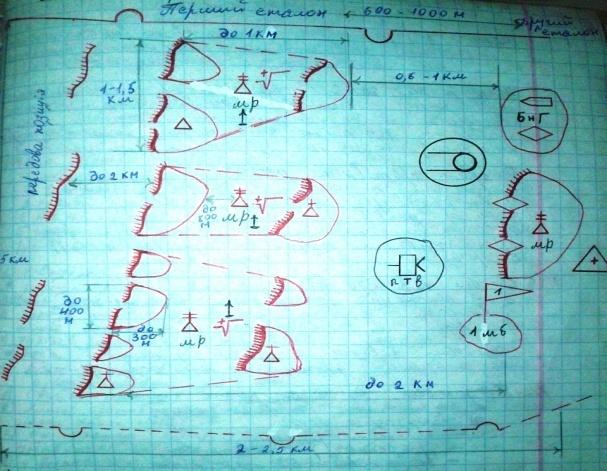 Перший ешалон 600-1000 м
Другий
ешалон
до 1 км
1-1,5
км
мр
0,6 - 1 км
БнГ
передова позиція
до 2 км
до
500
м
мр
мр
5 км
птв
1
до
400
м
до
300
м
мр
1 мб
до 2 км
2-2,5 км